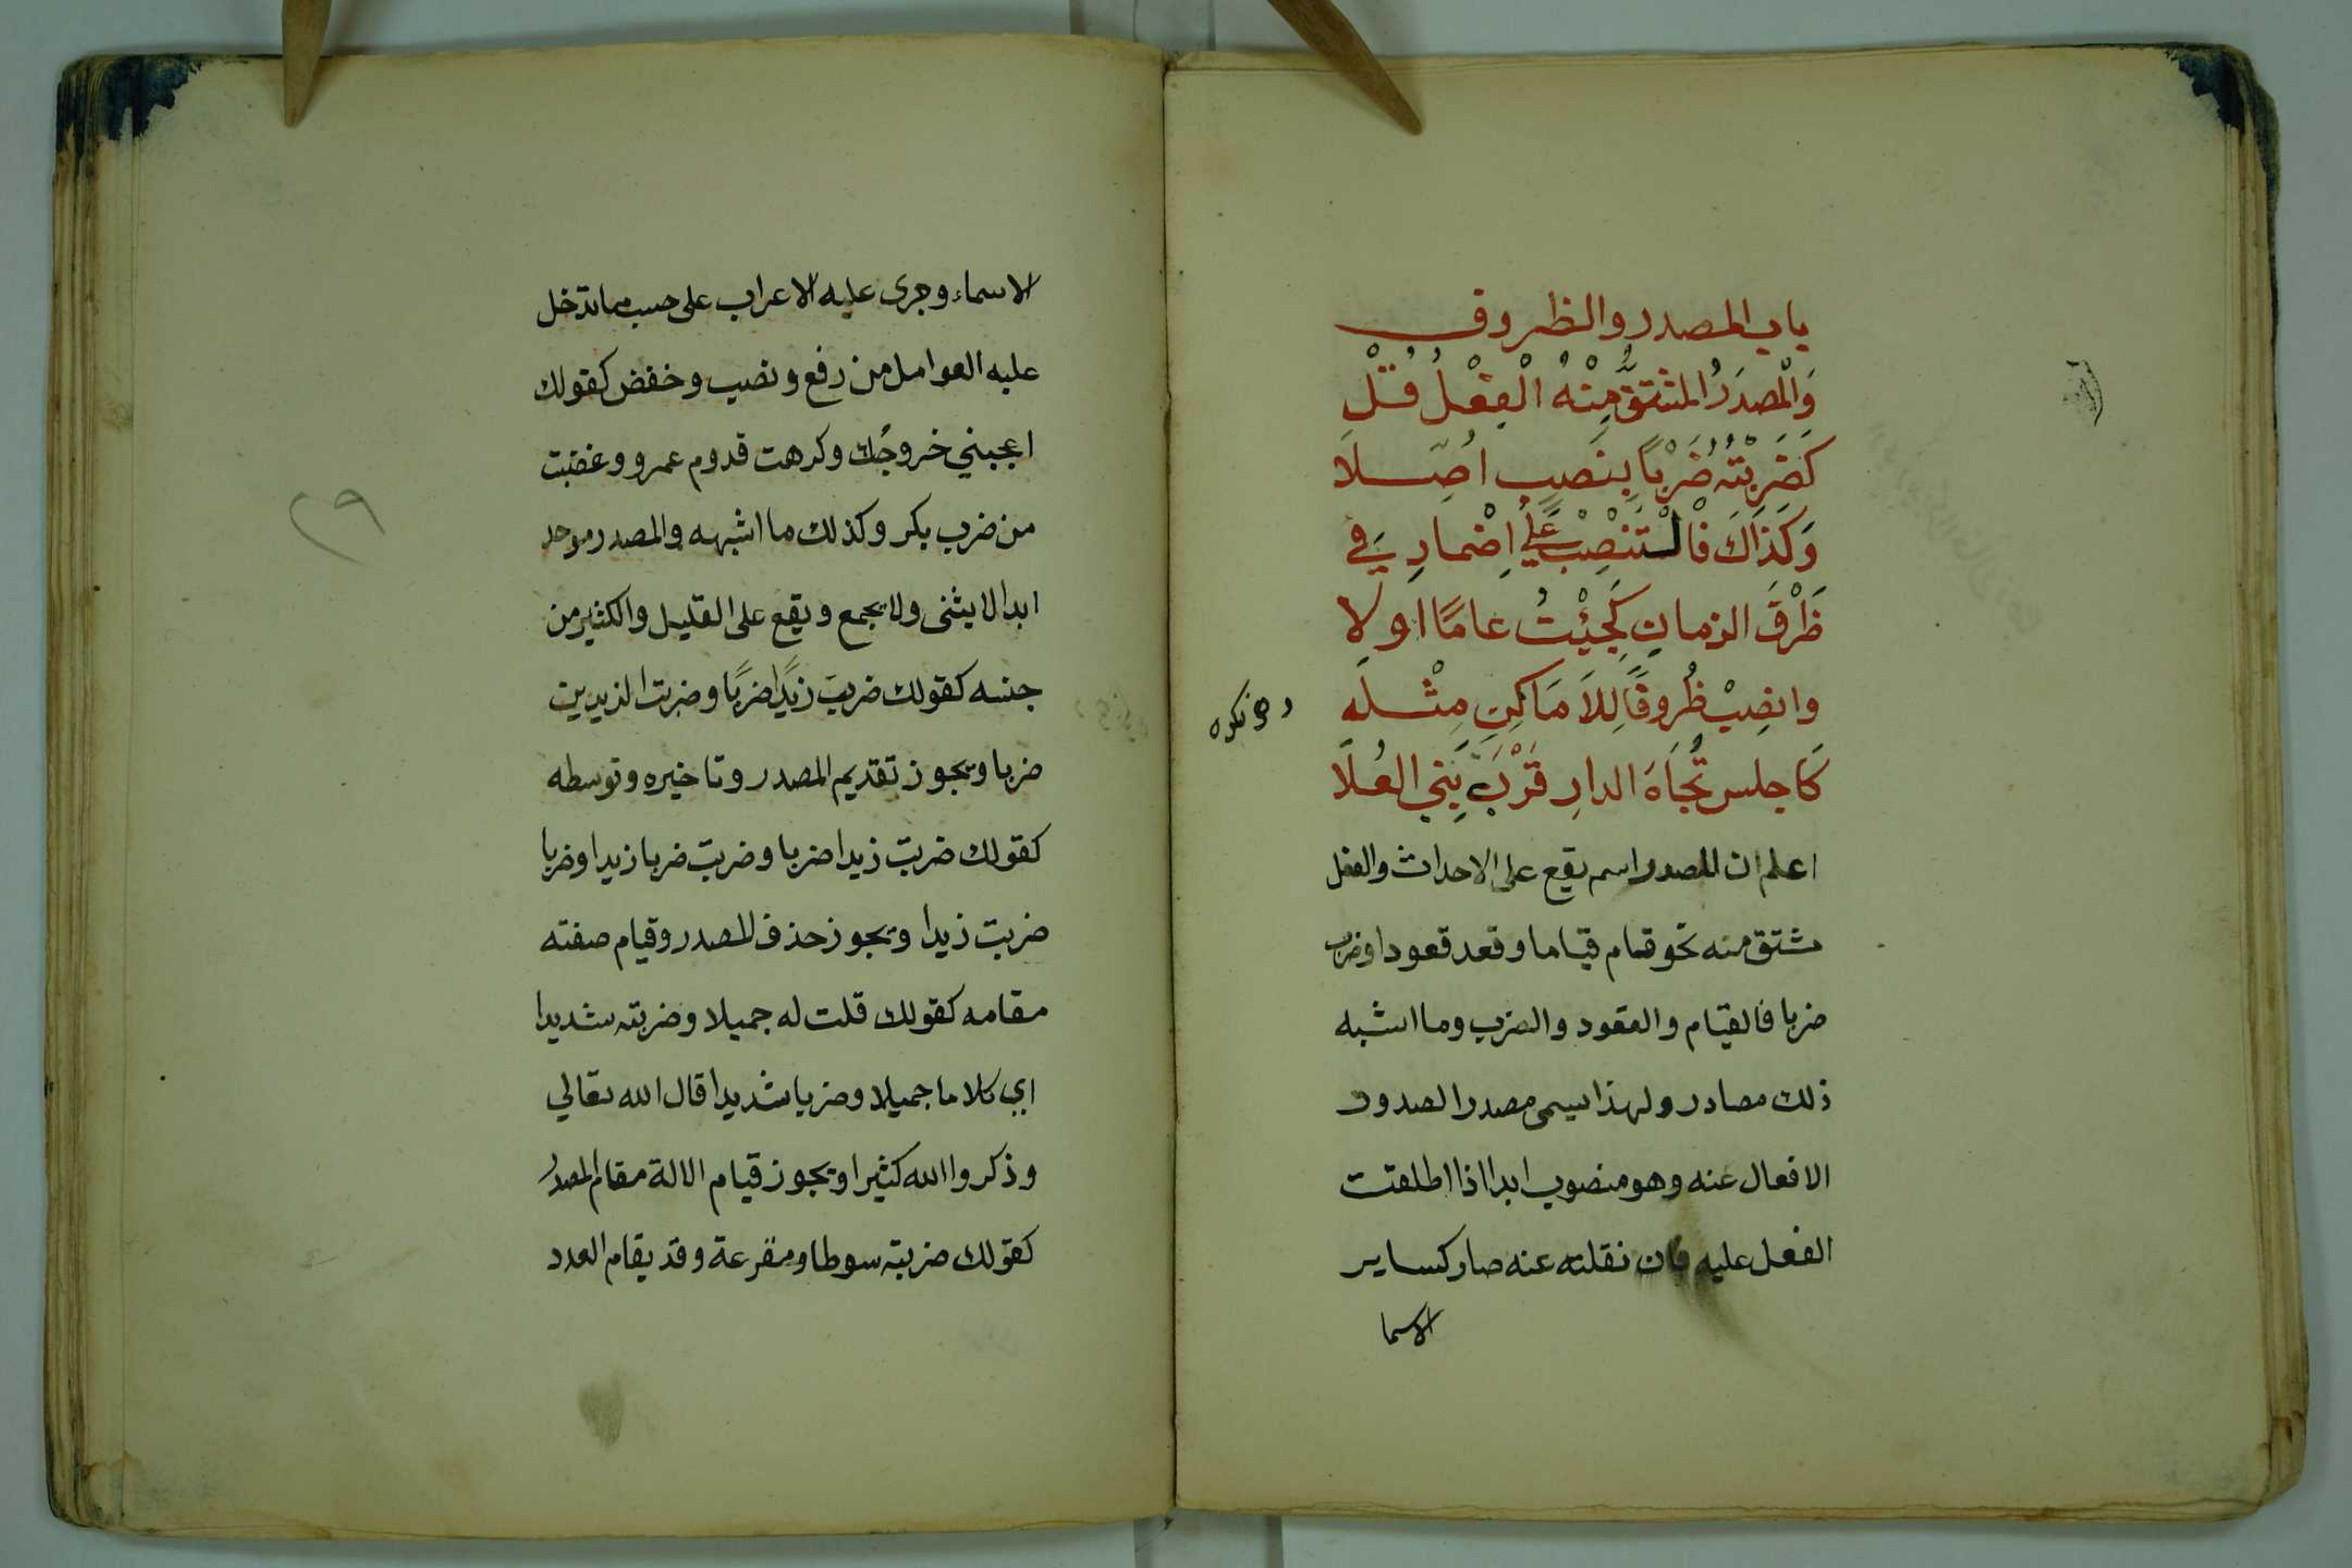 باب المصدر والظروف
وَالْمصدَرُ المشتقُّ مِنْهُ الْفِعْلُ قُلْ
كَضَرَبْتُهُ ضَرْباً بِنَصبٍ اُصِّلَا
وَكَذَاكَ فَالْتَنْصِبْ عَلَى اِضْمارِ فِي
ظَرْفَ الزمانِ كَجِئْتُ عَامًا اولا
وانصِبْ ظُروفًا لِلاَمَاكِنِ مِثْلَه
كَاجلس تُجَاهَ الدارِ قَرْبَ بَنِي العُلَا
اعلم ان المصدر اسم يقع على الاحداث والفعل
مشتق منه نحو قام قياما وقعد قعودا وضرب
ضربا فالقيام والقعود والضرب وما اشبه
ذلك مصادر ولهذا سمى مصدرا لصدور
الافعال عنه وهو منصوب ابدا اذا اطلقت
الفعل عليه فان نقلته عنه صار كساير
الاسما
الاسماء وجرى عليه الاعراب على حسب ما تدخل
عليه العوامل من رفع ونصب وخفض كقولك
اعجبني خروجُك وكرهت قدوم عمرو وغضبت
من ضرب بكر وكذلك ما اشبهه والمصدر موحد
ابدا لا يثنى ولا يجمع ويقع على القليل والكثير من
جنسه كقولك ضربت زيدًا ضربًا وضربت الزيدين
ضربا ويجوز تقديم المصدر وتاخيره وتوسطه
كقولك ضربت زيدا ضربا وضربت ضربا زيدا وضربا
ضربت زيدا ويجوز حذف المصدر وقيام صفته
مقامه كقولك قلت له جميلا وضربته شديدا
اي كلاما جميلا وضربا شديدا قال الله تعالي
وذكروا الله كثيرا ويجوز قيام الالة مقام المصدر
كقولك ضربته سوطا ومقرعة وقد يقام العدد
٢٩